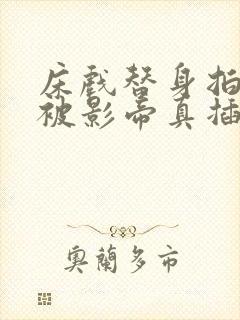 床戲替身拍
被影帝真插
奧蘭多市